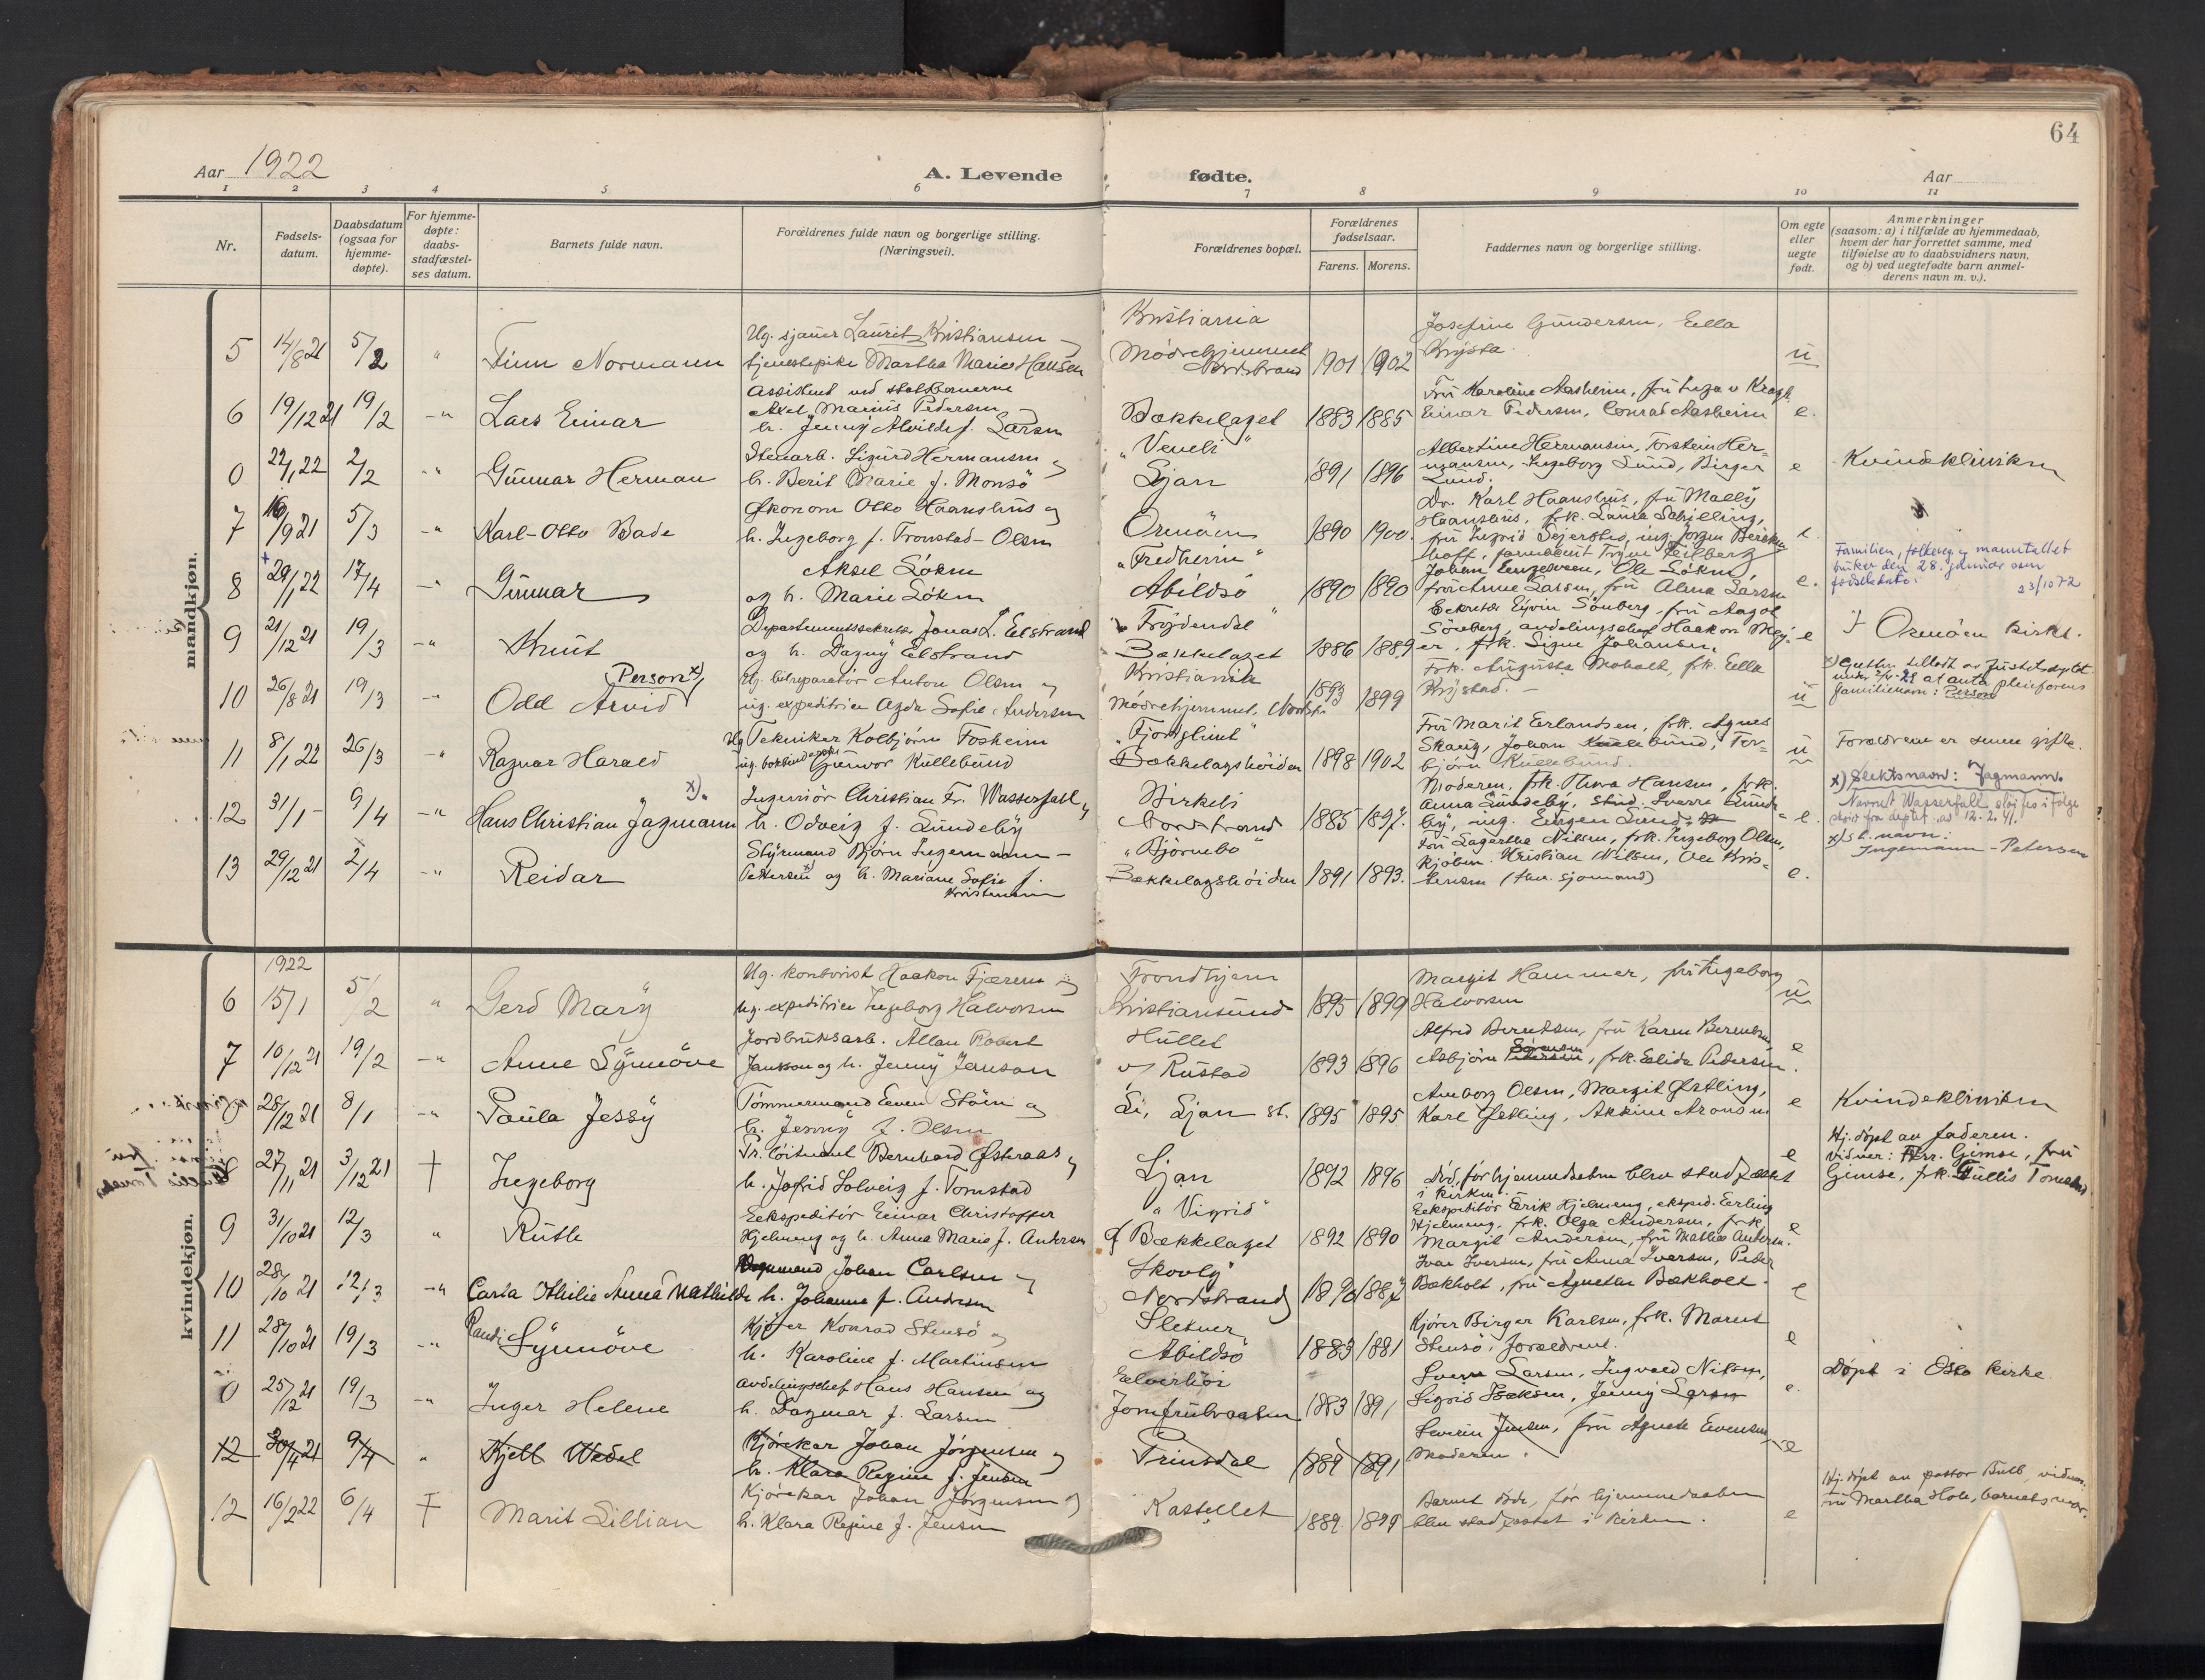 64
Aar 1922
A. Levende fødte.
Aar
1 2 3 4 5 6 7 8 9 10 11
Nr.
Fødsels-
datum.
Daabsdatum
(ogsaa for
hjemme-
døpte).
For hjemme-
døpte:
daabs-
stadfæstel-
ses datum.
Barnets fulde navn.
Forældrenes fulde navn og borgerlige stilling.
(Næringsvei).
Forældrenes bopæl.
Forældrenes
fødselsaar.
Farens. Morens.
Faddernes navn og borgerlige stilling.
Om egte
eller
uegte
født.
Anmerkninger
(saasom: a) i tilfælde av hjemmedaab,
hvem der har forrettet samme, med
tilføielse av to daabsvidners navn,
og b) ved uegtefødte barn anmel-
derens navn m. v.).
mandkjøn.
5 14/8 21 5/2 " Finn Normann
Ug. sjauer Laurits Kristiansen
tjenestepike Martha Marie Hansen
Kristiania
Mødrehjemmet
Nordstrand
1901 1902
Josefine Gundersen, Ella
Krysta
u
6 19/12 21 19/2 -"- Lars Einar
Assistent ved statsbanerne
Axel Marius Pedersen
h. Jenny Alvilde f. Larsen
Bækkelaget
1883 1885
Fru Karoline Aasheim, fru Inga v Kragh
Einar Pedersen, Conrad Aasheim
e.
0 22/1 22 2/2 -"- Gunnar Herman
Stenarb. Sigurd Hermansen og
h. Berit Marie f. Monsø
"Venli"
Ljan
1891 1896
Albertine Hermansen, Torstein Her-
mansen, Ingeborg Lund, Birger
Lund.
e
Kvindeklinikken
7 16/9 21 5/3 -"- Karl-Otto Bade
Økonom Otto Haanshus og
h. Ingeborg f. Tronstad-Olsen
Ormøen
1890 1900.
Dr. Karl Haanshus, fru Mally
Haanshus, frk. Laura Schilling,
fru Ingrid Sejersted, ing. Jørgen
e.
8 29/1 22 17/4 -"- Gunnar
Aksel Løken
og h. Marie Løken
"Fredheim"
Abildsø
1890 1890
Johan Engesveen, Ole Løken,
fru Anne Larsen, fru Alma Larsen
e.
Familien, folkereg. og manntallet
bruker den 28. januar som
fødselsdato.
23/10 72
9 21/12 21 19/3 -"- Knut
Departementssekretær Jonas L. Elstrand
og h. Dagny Elstrand
"Frydendal"
Bækkelaget
1886 1889
Sekretær Eyvin Sønberg, fru Aagot
Sønberg, avdelingschef Haakon Mey-
er, frk. Signe Johansen,
e
Ormøen Kirke.
10 26/8 21 19/3 -"- Odd Arvid Person x)
Ug. bilreparatør Anton Olsen og
ug. expeditrice Agda Sofie Andersen
Kristiania
Mødrehjemmet, Nordstr.
1893 1899
Frk. Augusta Moholt, frk. Ella
Krystad. -
u
11 8/1 22 26/3 -"- Ragnar Harald
Ug Tekniker Kolbjørn Fosheim
Gunvor Kullebund
"Fjordglimt"
Bækkelagshøiden
1898 1902
Fru Marit Erlandsen, frk. Agnes
Skaug, Johan Kullebund, Tor-
bjørn Kullebund.
u
Forældrene er senere gifte.
12 31/1 - 9/4 -"- Hans Christian Jagmann x)
Ingeniør Christian Fr. Wasserfall
h. Odveig f. Lundeby
Birkeli
Nordstrand
1885 1897.
Moderen, frk. Thora Hansen, frk.
Anna Lundeby, stud. Sverre Lunde-
by, ing. Eugen Lund.
e.
x) Slektsnavn: Jagmann.
Navnet Wasserfall sløjfes ifølge
skriv fra deptet. av 12.2.41.
13 29/12 21 2/4 -"- Reidar
Styrmand Bjørn Ingemann-
Petersen og h. Mariane Sofie f.
Kristensen
"Bjørnebo"
Bækkelagshøiden
1891 1893.
Fru Lagertha Nilsen, frk. Ingeborg Olsen,
kjøbm. Kristian Nilsen, Ole Kris-
tensen (fhv. sjømand)
e.
x) sl. navn:
Ingemann-Petersen
kvindekjøn.
1922
6 15/1 5/2 " Gerd Mary
Ug. kontorist Haakon Fjærem og
ug. expeditrice Ingeborg Halvorsen
Trondhjem
Kristiansund
1895 1899
Margit Hammer, fru Ingeborg
Halvorsen
u
7 10/12 21 19/2 -"- Anne Synnöve
Jordbruksarb. Allan Robert
Jansson og h. Jenny Janson
Hullet
v/ Rustad
1893 1896
Alfred Berntsen, fru Karen Berntsen,
Asbjørn Sørensen, frk. Elida Pedersen.
e
0 28/12 21 8/1 -"- Paula Jessy
Tømmermand Even Støen og
h. Jenny f. Olsen
Li, Ljan st.
1895 1895
Amborg Olsen, Margit Østling,
Karl Østling, Akkine Aronsen
e
Kvindeklinikken
8 27/11 21 3/12 21 † Ingeborg
Pr. løitnant Bernhard Østeraas og
h. Jofrid Solveig f. Tomstad
Ljan
1892 1896
Død, før hjemmedaaben blev stadfæstet
i kirken.
e
Hj. døpt av faderen.
vidner: Hr. Gimse, fru
Gimse, frk. Tullis Tomstad
9 31/10 21 12/3 " Ruth
Ekspeditør Einar Christoffer
Hjelmeng og h. Anna Marie f. Andersen
"Vigrid"
Bækkelaget
1892 1890
Ekspeditør Erik Hjelmeng, eksped. Erling
Hjelmeng, frk. Olga Andersen, frk.
Margit Andersen, fru Mathea Andersen.
e
10 28/10 21 12/3 -"- Carla Othilie Anna Mathilde
Johan Carlsen og
h. Johanna f. Andersen
Skovly
Nordstrand
1890 1887
Ivar Iversen, fru Anna Iversen, Peder
Bækholt, fru Agnethe Bækholt.
e
11 28/10 21 19/3 -"- Randi Synnöve
Kjører Konrad Stensø og
h. Karoline f. Martinsen
Sletner
Abildsø
1883 1881
Kjører Birger Karlsen, frk. Marent
Stensø, forældrene.
e
0 25/12 21 19/3 -"- Inger Helene
Avdelingschef Hans Hansen og
h. Dagmar f. Larsen
Elverhøi
Jomfrubraaten
1883 1891
Sverre Larsen, Ingvald Nilsen,
Sigrid Isaksen, Jenny Larsen
e.
Døpt i Oslo kirke
12 30/4 21 9/4 " Kjell Wedel
Kjørekar Johan Jørgensen og
h. Klara Regine f. Jensen
Prinsdal
1889 1891
Severin Jensen, fru Agnete Evensen
Moderen.
e
12 16/2 22 6/4 † Marit Lillian
Kjørekar Johan Jørgensen og
h. Klara Regine f. Jensen
Kastellet
1889 1899
Barnet døde, før hjemmedaaben
blev stadfæstet i kirken.
e
Hj. døpt av pastor Bull, vidner:
fru Martha Hole, barnets mor.